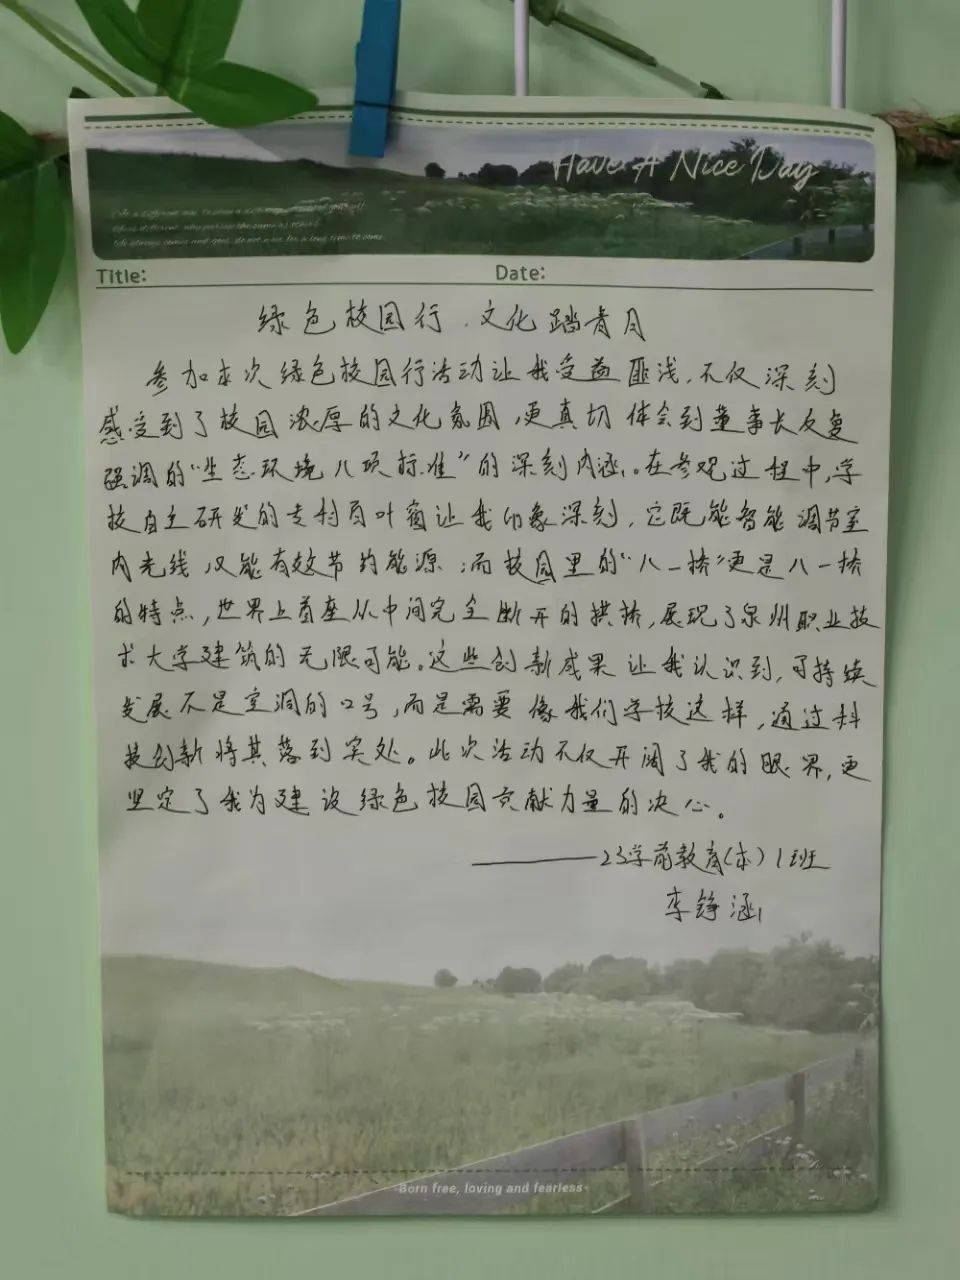 Have A Nice Day
Title:
Date:
绿色校园行.文化踏青月
参加本次绿色校园行活动让我受益匪浅,不仅深刻
感受到了校园浓厚的文化氛围,更真切体会到董事长反复
强调的“生态环境八项标准”的深刻内涵。在参观过程中,学
校自主研发的专利百叶窗让我印象深刻,它既能智能调节室
内光线,又能有效节约能源;而校园里的“八一桥”更是八一桥
的特点,世界上首座从中间完全断开的拱桥,展现了泉州职业技
术大学建筑的无限可能。这些创新成果让我认识到,可持续
发展不是空洞的口号,而是需要像我们学校这样,通过科
技创新将其落到实处。此次活动不仅开阔了我的眼界,更
坚定了我为建设绿色校园贡献力量的决心。
———23学前教育(本)1班
李铮涵
-Born free, loving and fearless-